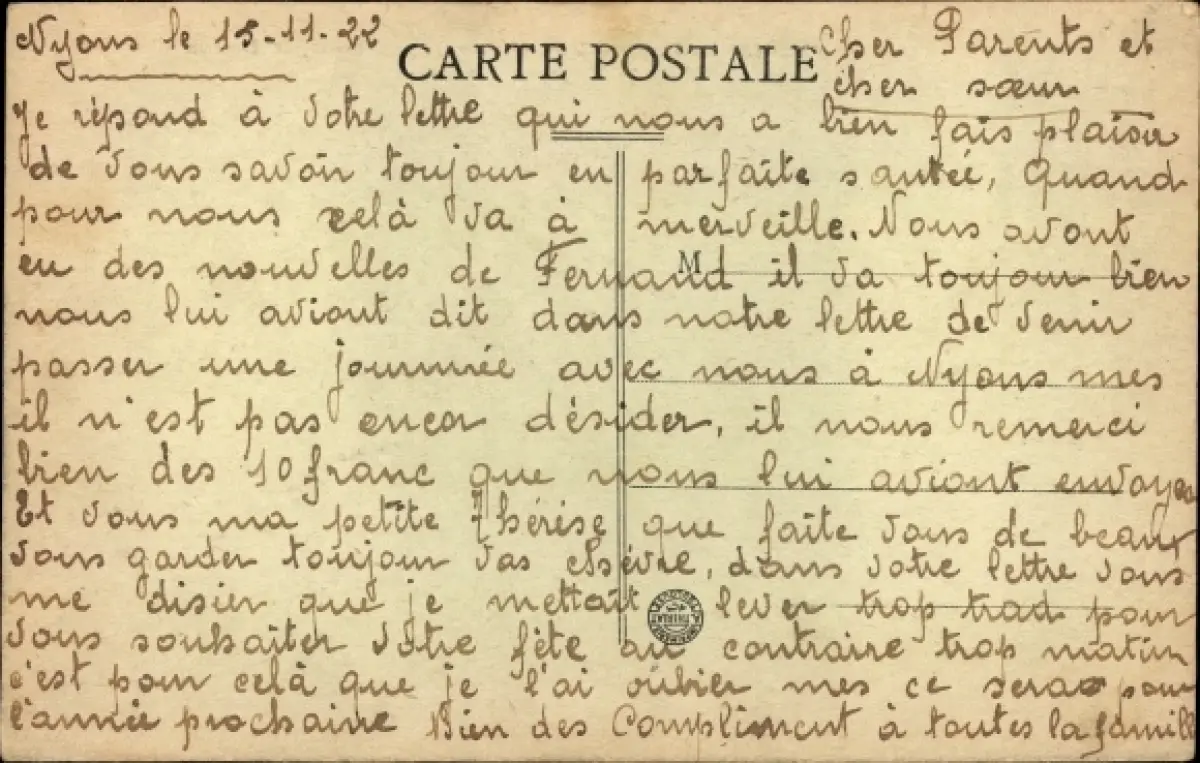 Nyons le 15-11-22
CARTE POSTALE
Cher Parents et
cher sœur
Je répond à votre lettre qui nous a bien fais plaisir
de vous savoir toujour en parfaite santée, Quand
pour nous celà va à merveille. Nous avont
eu des nouvelles de Fernand il va toujour bien
nous lui aviont dit dans notre lettre de venir
passer une journnée avec nous à Nyons mes
il n'est pas encor désider, il nous remerci
bien des 10 franc que nous lui aviont envoyer
Et vous ma petite Thérèse que faite vous de beaux
vous garder toujour vas chèvre, dans votre lettre vous
me disier que je mettait lever trop trad pour
vous souhaiter votre fête au contraire trop matin
c'est pour celà que je l'ai oublier mes ce sera pour
l'année prochaine Bien des Compliment à toutes la famille
M